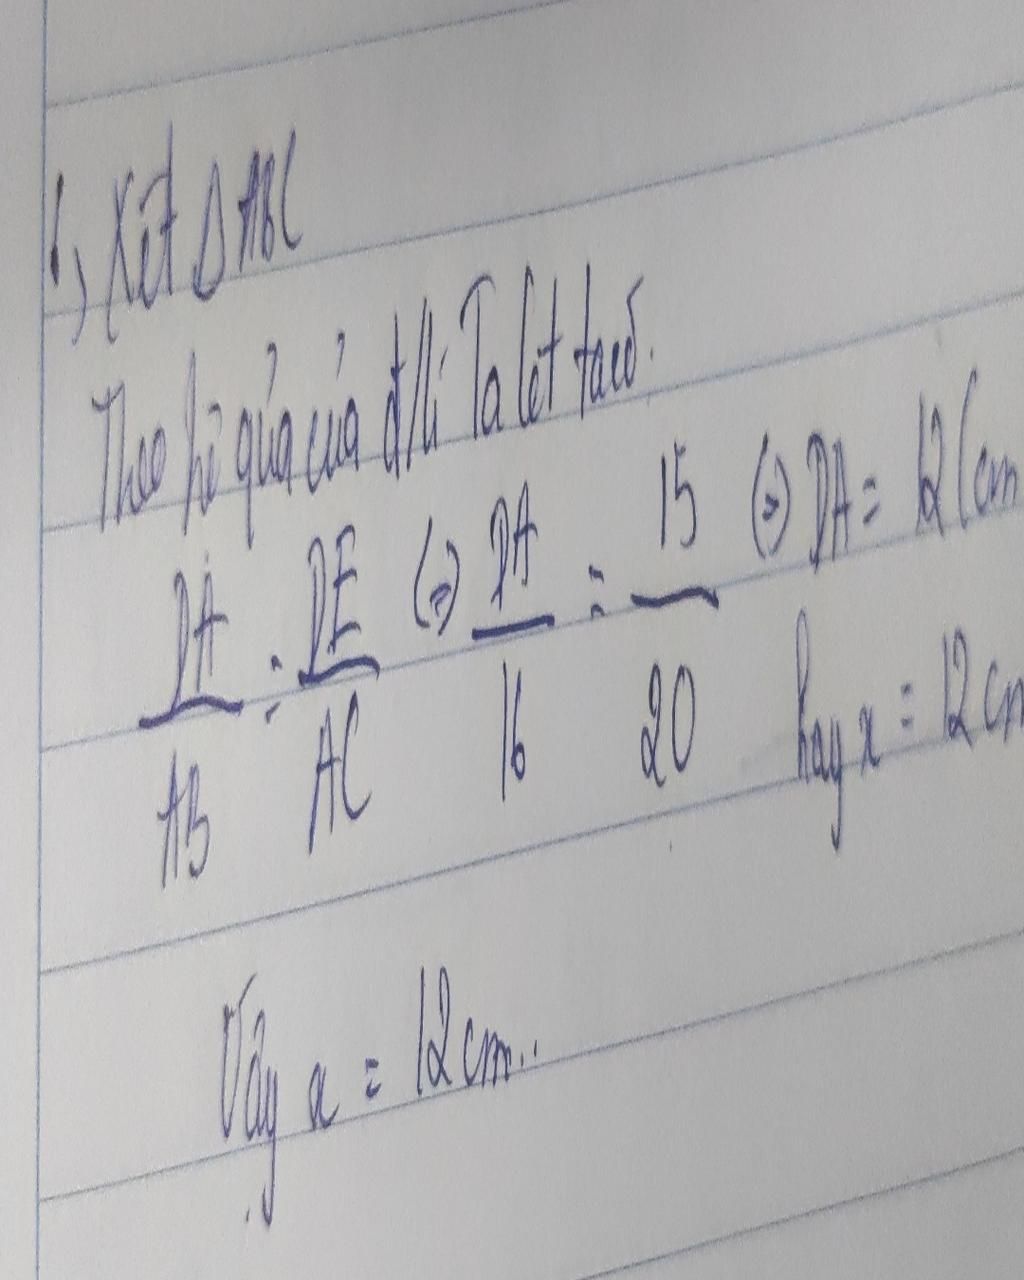 b, Xét Δ ABC
Theo hệ quả của đ/lí Ta lét ta có.
DA/AB = DE/AC (=) DA/16 = 15/20 (=) DA = 12 (cm
hay x = 12 cm
Vậy x = 12 cm..